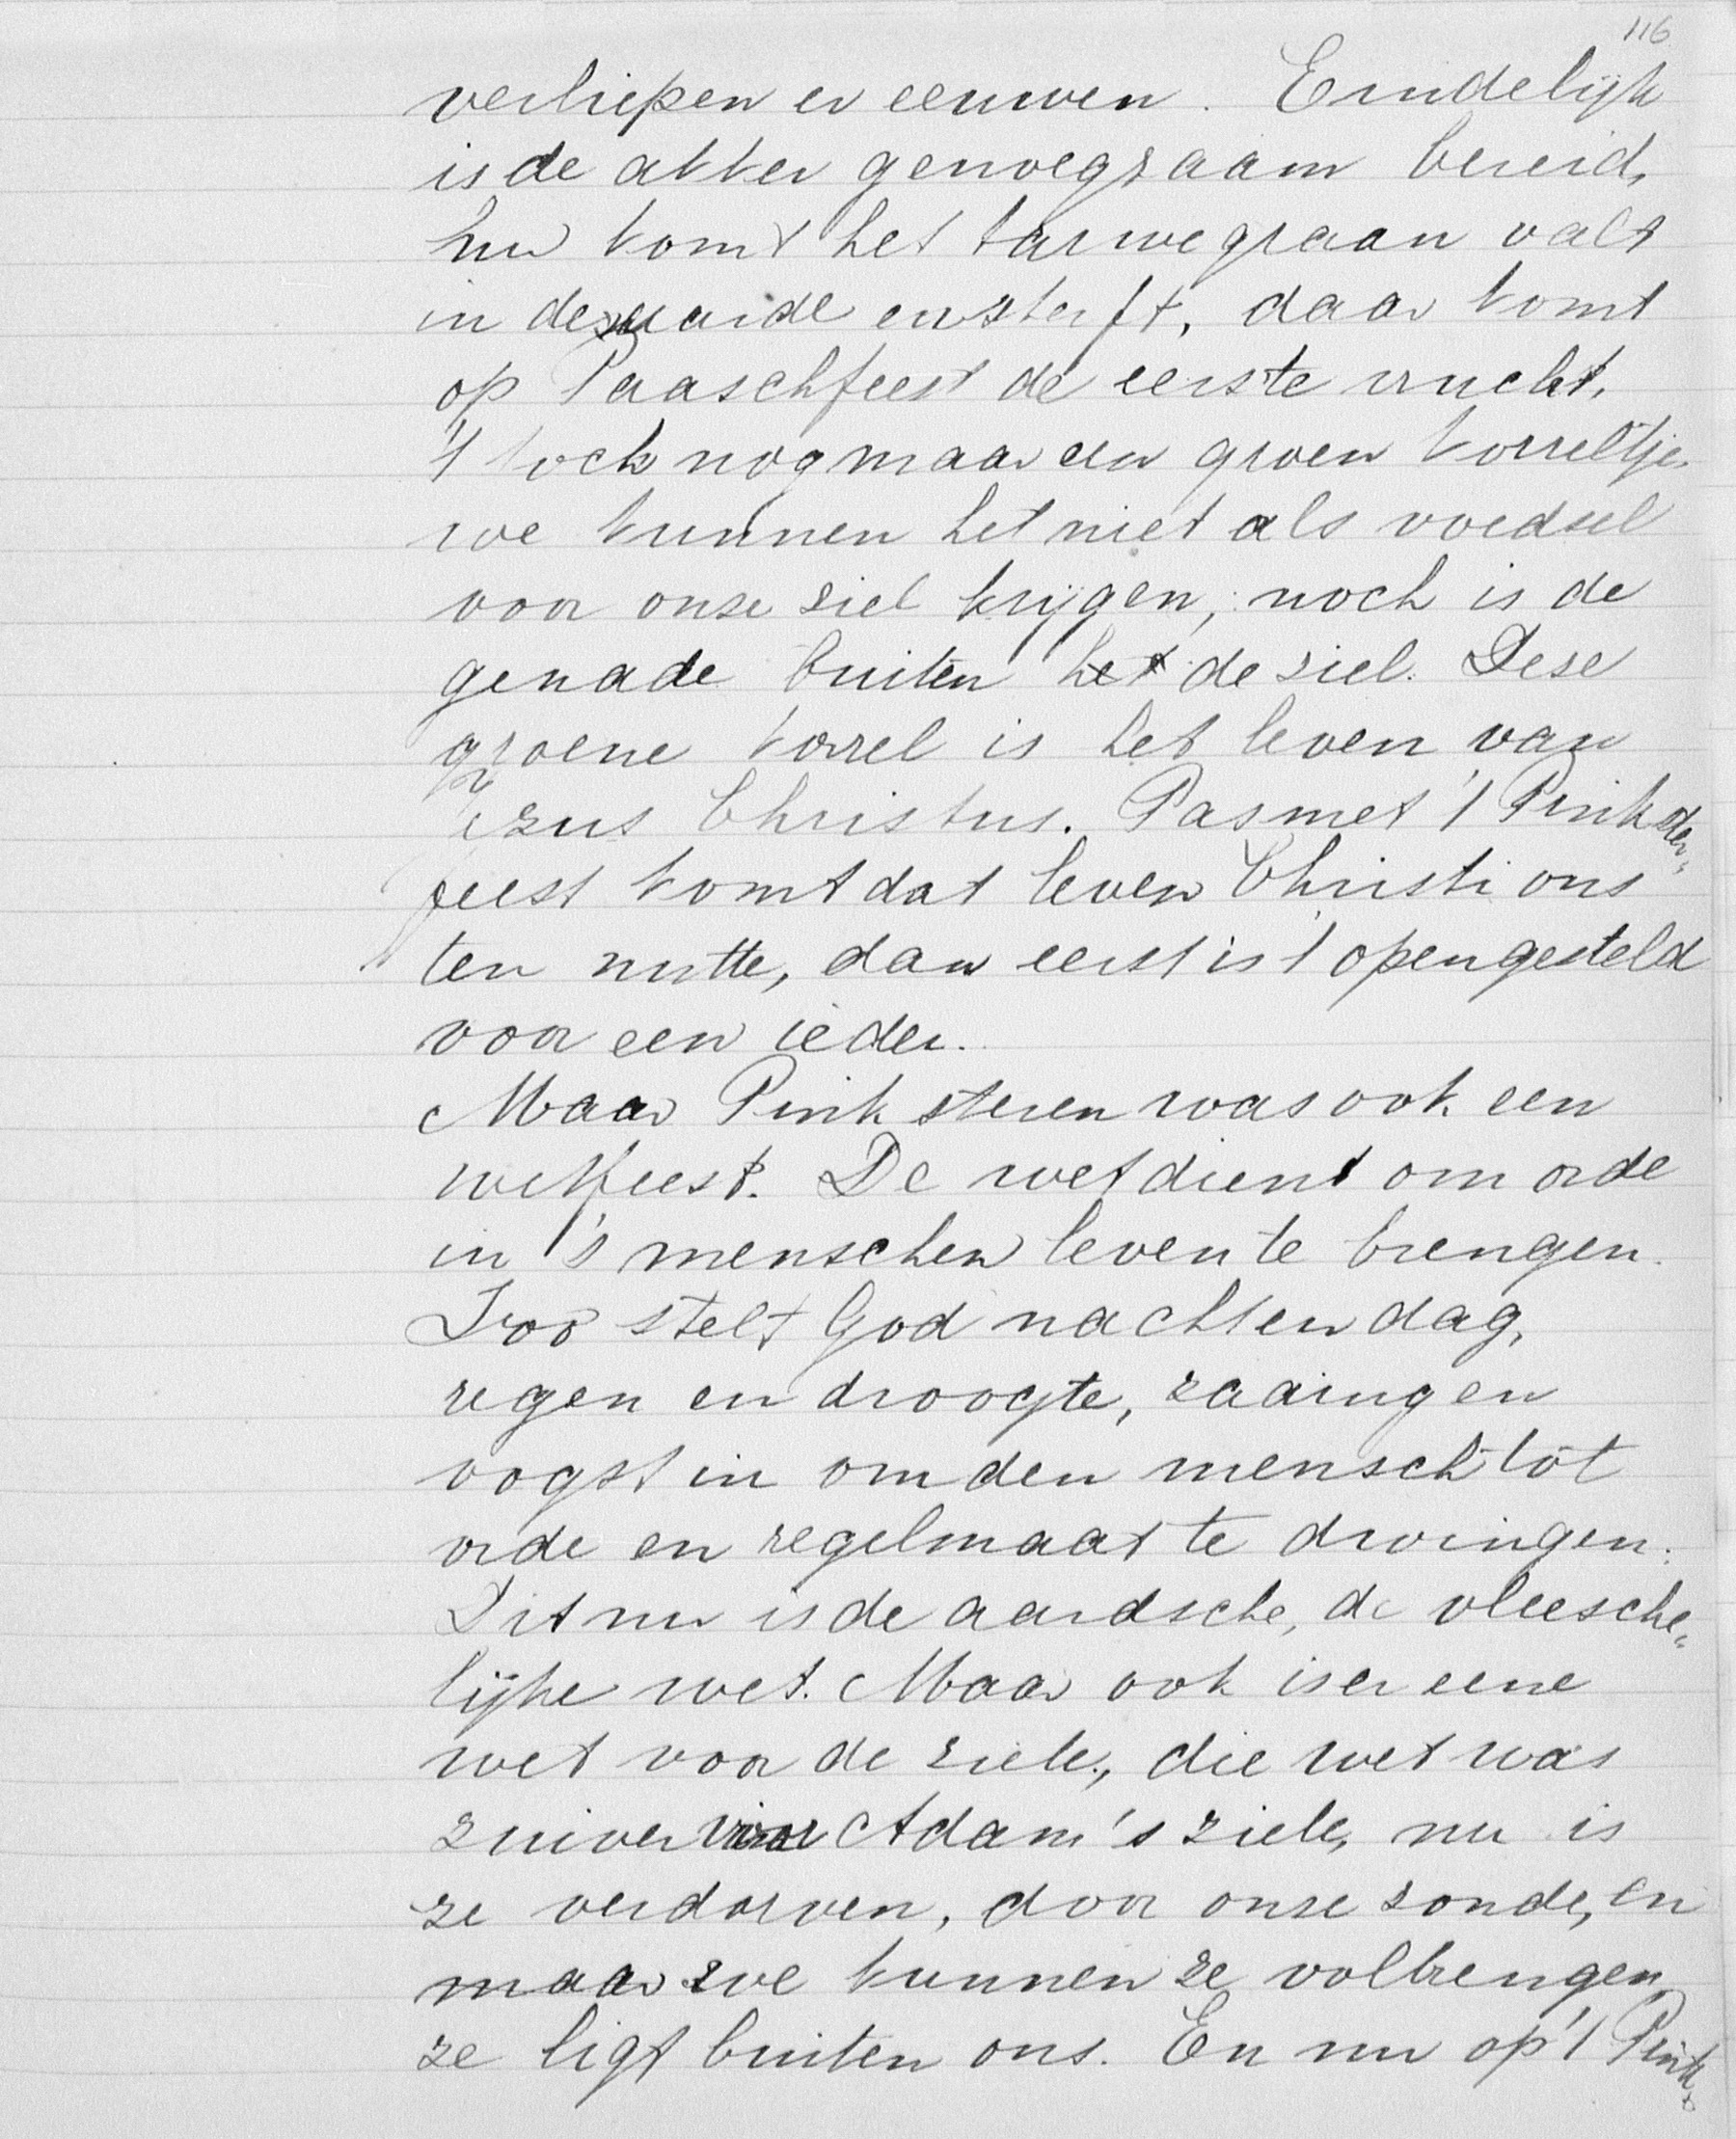 116
verliepen er eeuwen. Eindelijk
is de akker genoegzaam bereid,
nu komt het tarwegraan valt
in de aarde en sterft, daar komt
op Paaschfeest de eerste vrucht,
't toch nog maar een groen korreltje
we kunnen het niet als voedsel
voor onze ziel krijgen; noch is de
genade buiten het de ziel. Deze
groene korrel is het leven van
Jezus Christus. Pas met 't Pinkster„
feest komt dat leven Christi ons
ten nutte, dan eerst is 't opengesteld
voor een ieder.
Maar Pinksteren was ook een
wetfeest. De wet dient om orde
in 's menschen leven te brengen.
Zoo stelt God nacht en dag,
regen en droogte, zaaiing en
oogst in om den mensch tot
orde en regelmaat te dwingen.
Dit nu is de aardsche, de vleesche„
lijke wet. Maar ook is er eene
wet voor de ziele, die wet was
zuiver voor Adam's ziele, nu is
ze verdorven, door onze zonde, en
maar we kunnen ze volbrengen,
ze ligt buiten ons. En nu op 't Pink„